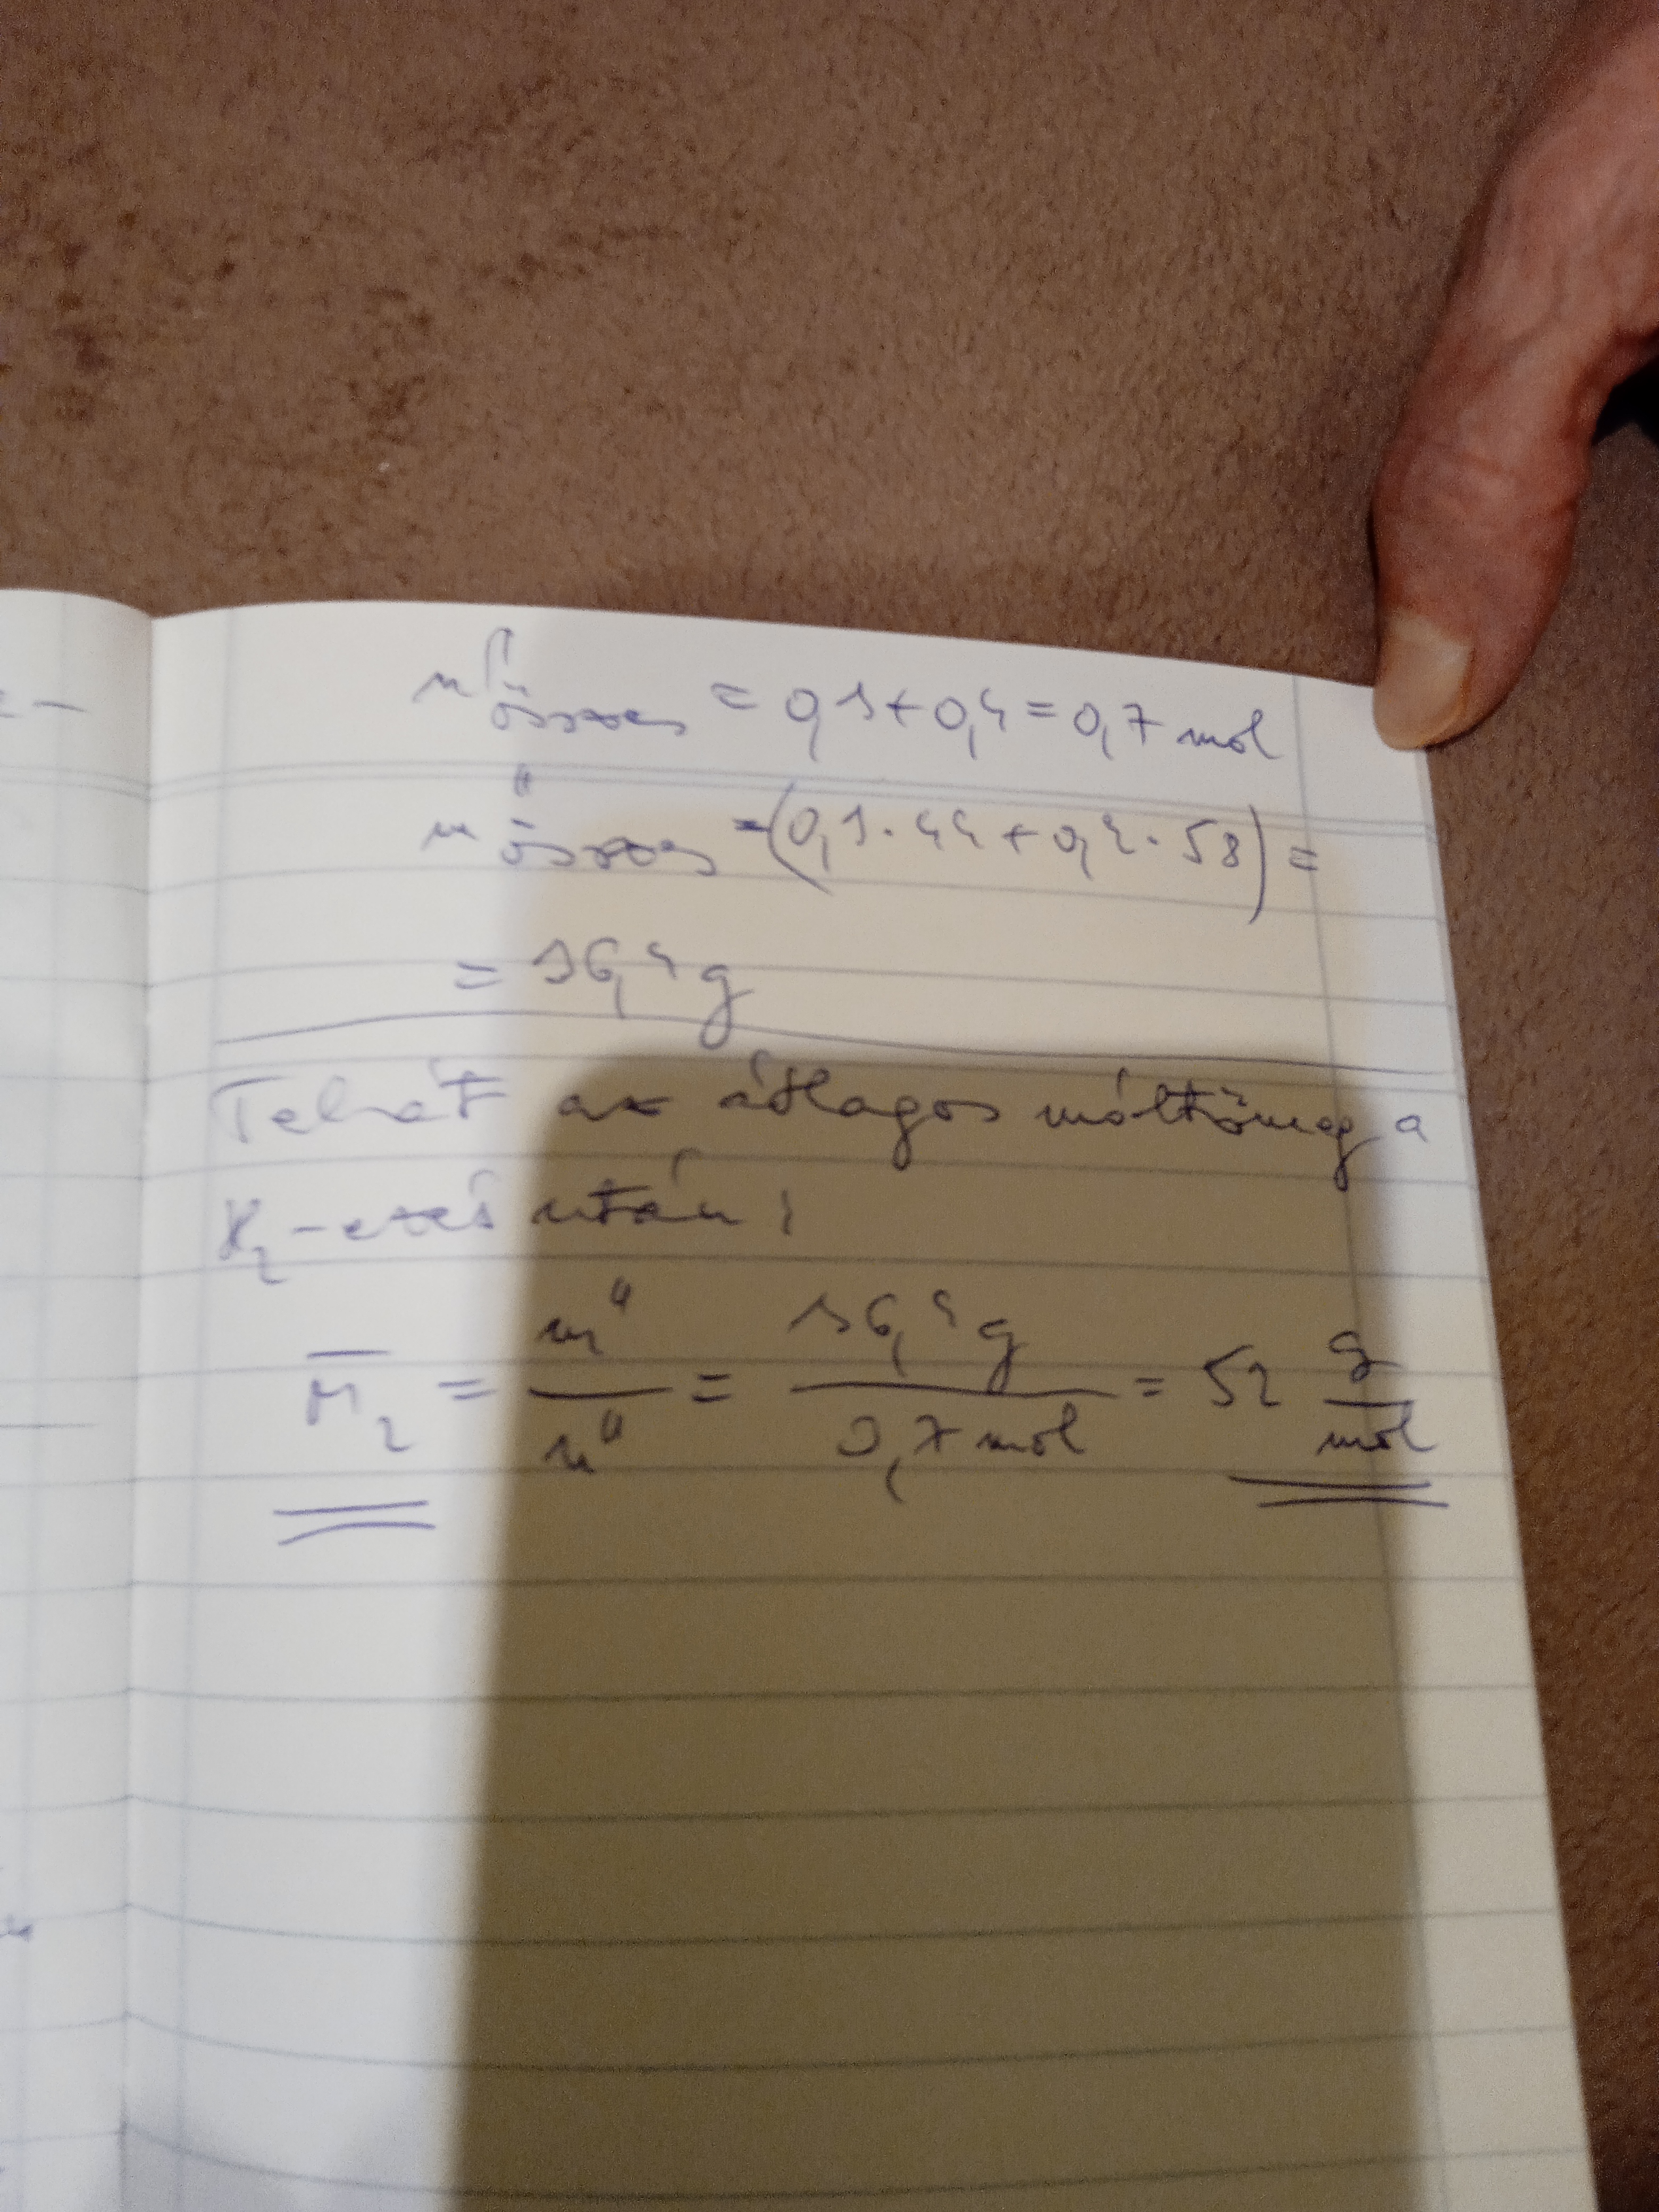 n"összes = 0,3+0,4=0,7 mol
m"összes =(0,3·44+0,4·58)=
= 36,4 g
Tehát az átlagos móltömeg a
H₂-ezés után:
M̄₂ = m"/n" = 36,4 g/0,7 mol = 52 g/mol